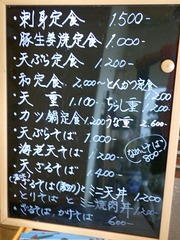 ・刺身定食 1500-
・豚生姜焼定食 1.000-
・天ぷら定食 1.200-
・和定食 2.000〜とんかつ定食
・天重 1.100- ちらし重 1.200
・カツ鍋定食 1.200 うな重 2.600-
・天ぷらそば 1.000-
・海老天そば 1.200-
・天ざるそば 1.400-
800-
ざるそば とミニ天丼 1.200
・とりそばとミニ焼肉丼 1.200-
・ざるそば、かけそば 600-